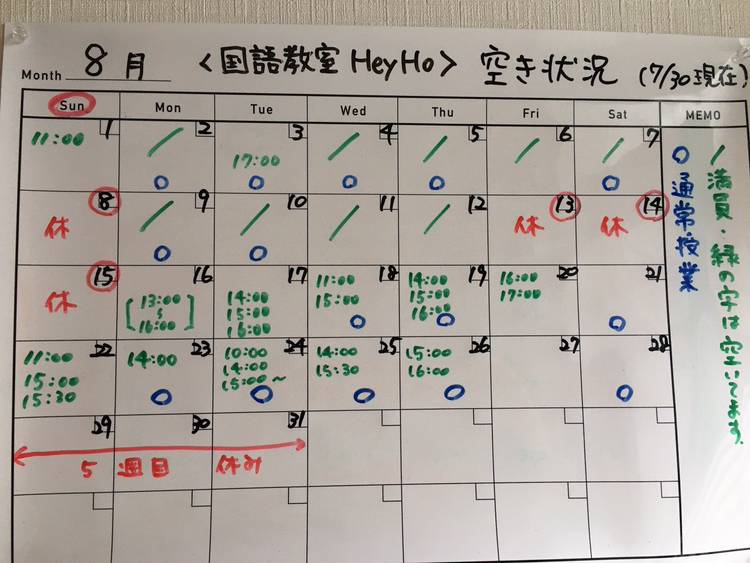 Month 8月 〈国語教室 HeyHo〉 空き状況 (7/30現在)
Sun Mon Tue Wed Thu Fri Sat MEMO
1 2 3 4 5 6 7
11:00
17:00
8 9 10 11 12 13 14
休 休 休
15 16 17 18 19 20 21
休
[13:00
〜
16:00]
14:00
15:00
16:00
11:00
15:00
14:00
15:00
16:00
16:00
17:00
22 23 24 25 26 27 28
11:00
15:00
15:30
14:00
10:00
14:00
15:00〜
14:00
15:30
15:00
16:00
29 30 31
5週目 休み
/満員・緑の字は空いてます。
○通常授業